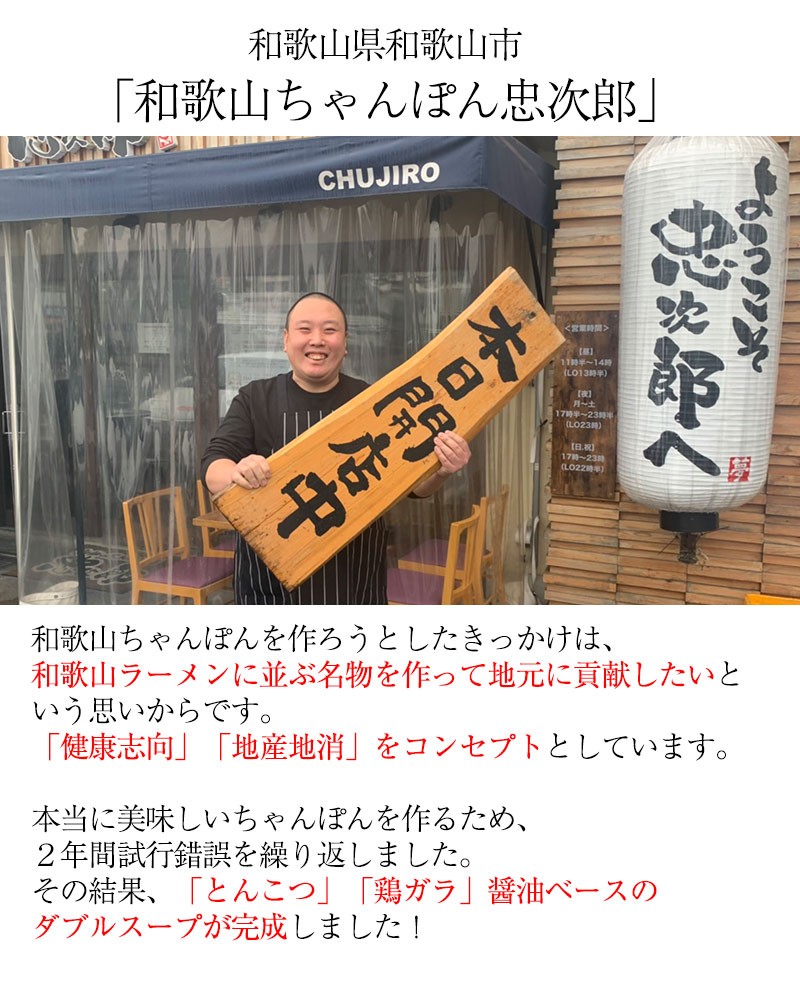 和歌山県和歌山市
「和歌山ちゃんぽん忠次郎」
CHUJIRO
本日開店中
<営業時間>
【昼】
11時半〜14時
(LO13時半)
【夜】
月〜土
17時半〜23時半
(LO23時)
【日,祝】
17時〜23時
(LO22時半)
ようこそ
忠次郎へ
夢
和歌山ちゃんぽんを作ろうとしたきっかけは、
和歌山ラーメンに並ぶ名物を作って地元に貢献したいと
いう思いからです。
「健康志向」「地産地消」をコンセプトとしています。
本当に美味しいちゃんぽんを作るため、
２年間試行錯誤を繰り返しました。
その結果、「とんこつ」「鶏ガラ」醤油ベースの
ダブルスープが完成しました！